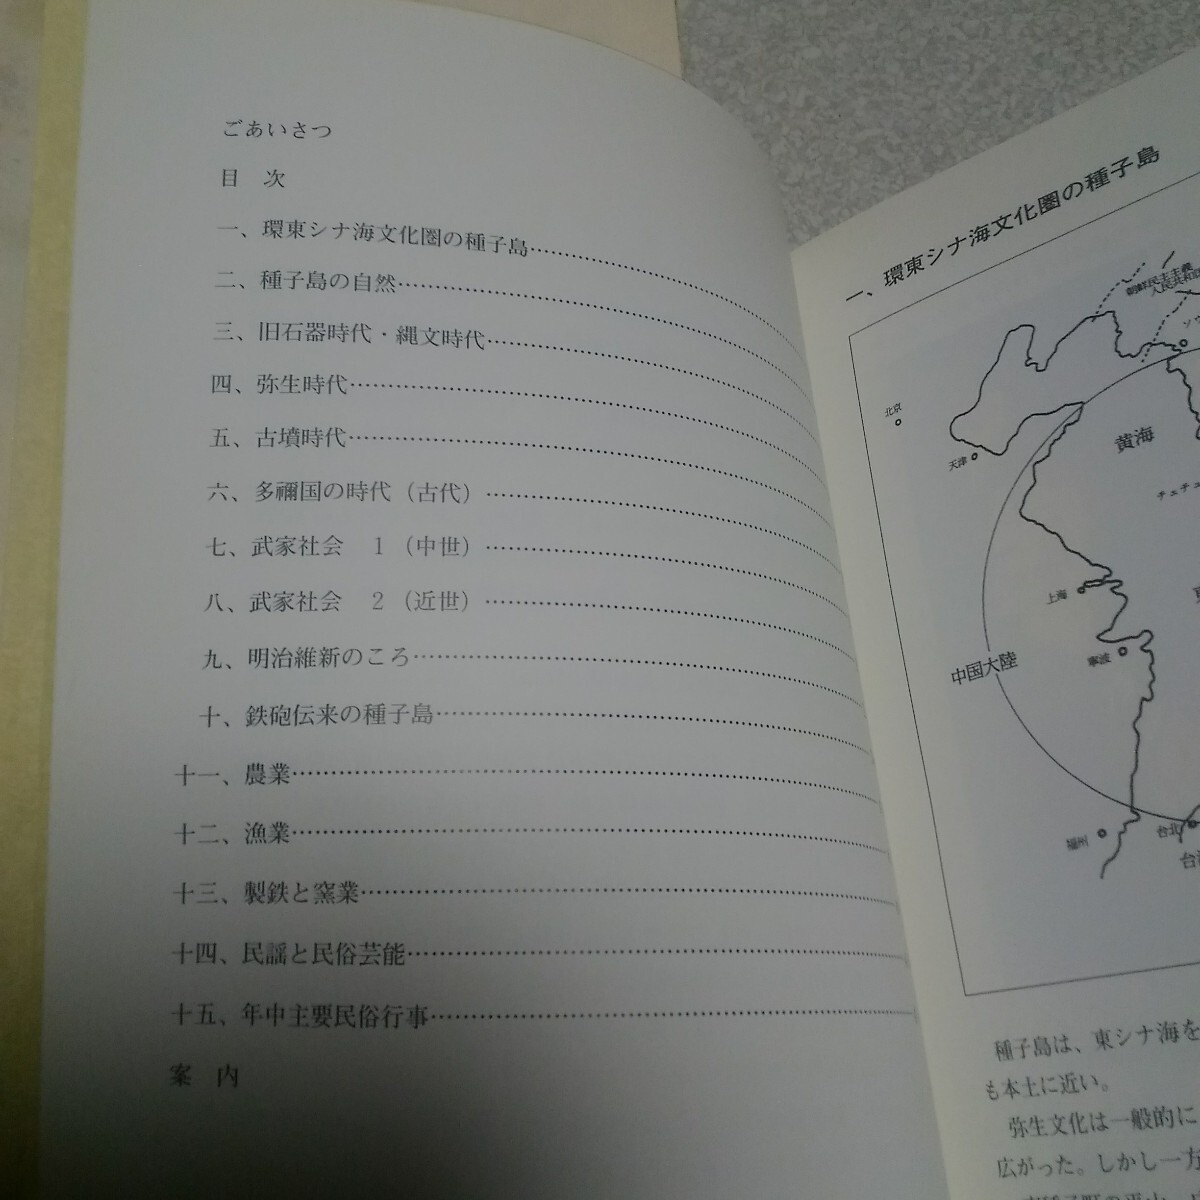 ごあいさつ
目　次
一、環東シナ海文化圏の種子島
二、種子島の自然
三、旧石器時代・縄文時代
四、弥生時代
五、古墳時代
六、多禰国の時代（古代）
七、武家社会　１（中世）
八、武家社会　２（近世）
九、明治維新のころ
十、鉄砲伝来の種子島
十一、農業
十二、漁業
十三、製鉄と窯業
十四、民謡と民俗芸能
十五、年中主要民俗行事
案　内
一、環東シナ海文化圏の種子島
朝鮮民主主義
人民共和国
北京
天津
黄海
チェチュ
上海
寧波
中国大陸
福州
台北
種子島は、東シナ海を
も本土に近い。
弥生文化は一般的に
広がった。しかし一方